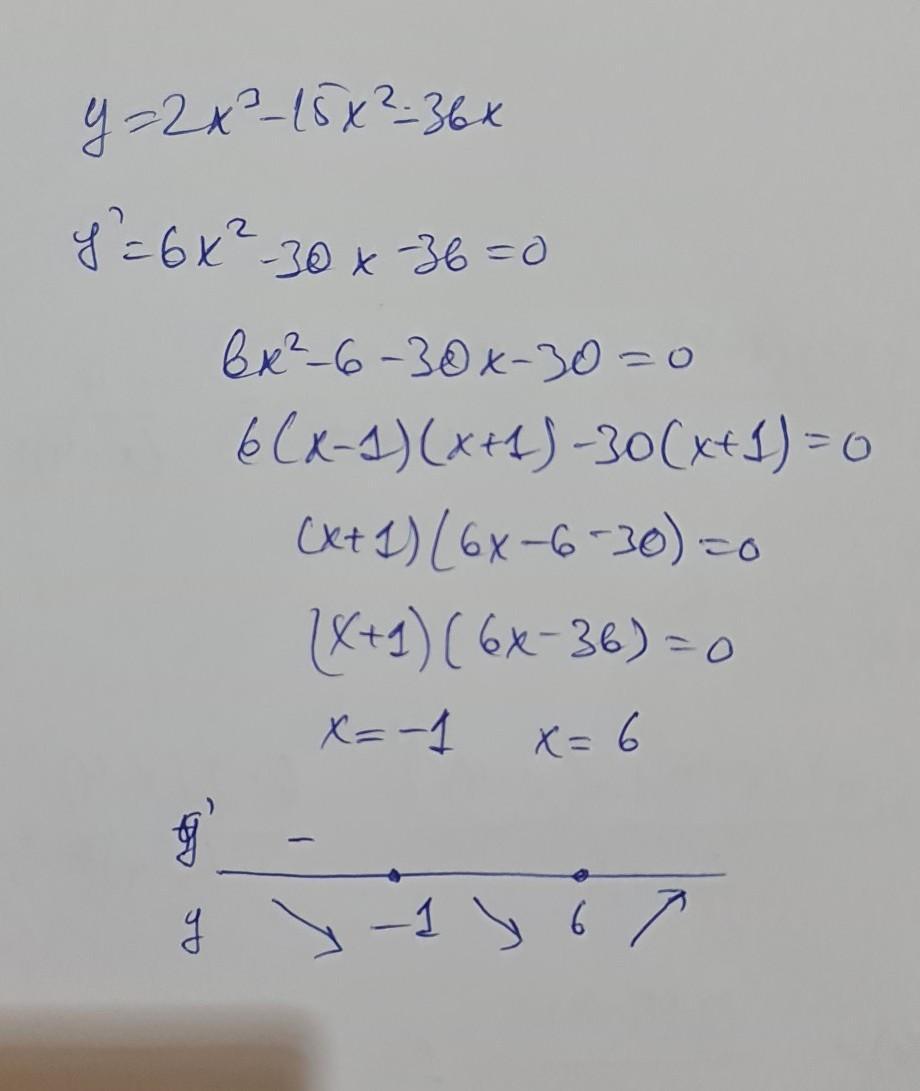 y=2x³-15x²-36x
y'=6x²-30x-36=0
6x²-6-30x-30=0
6(x-1)(x+1)-30(x+1)=0
(x+1)(6x-6-30)=0
(x+1)(6x-36)=0
x=-1 x=6
y' -
y ↘ -1 ↘ 6 ↗